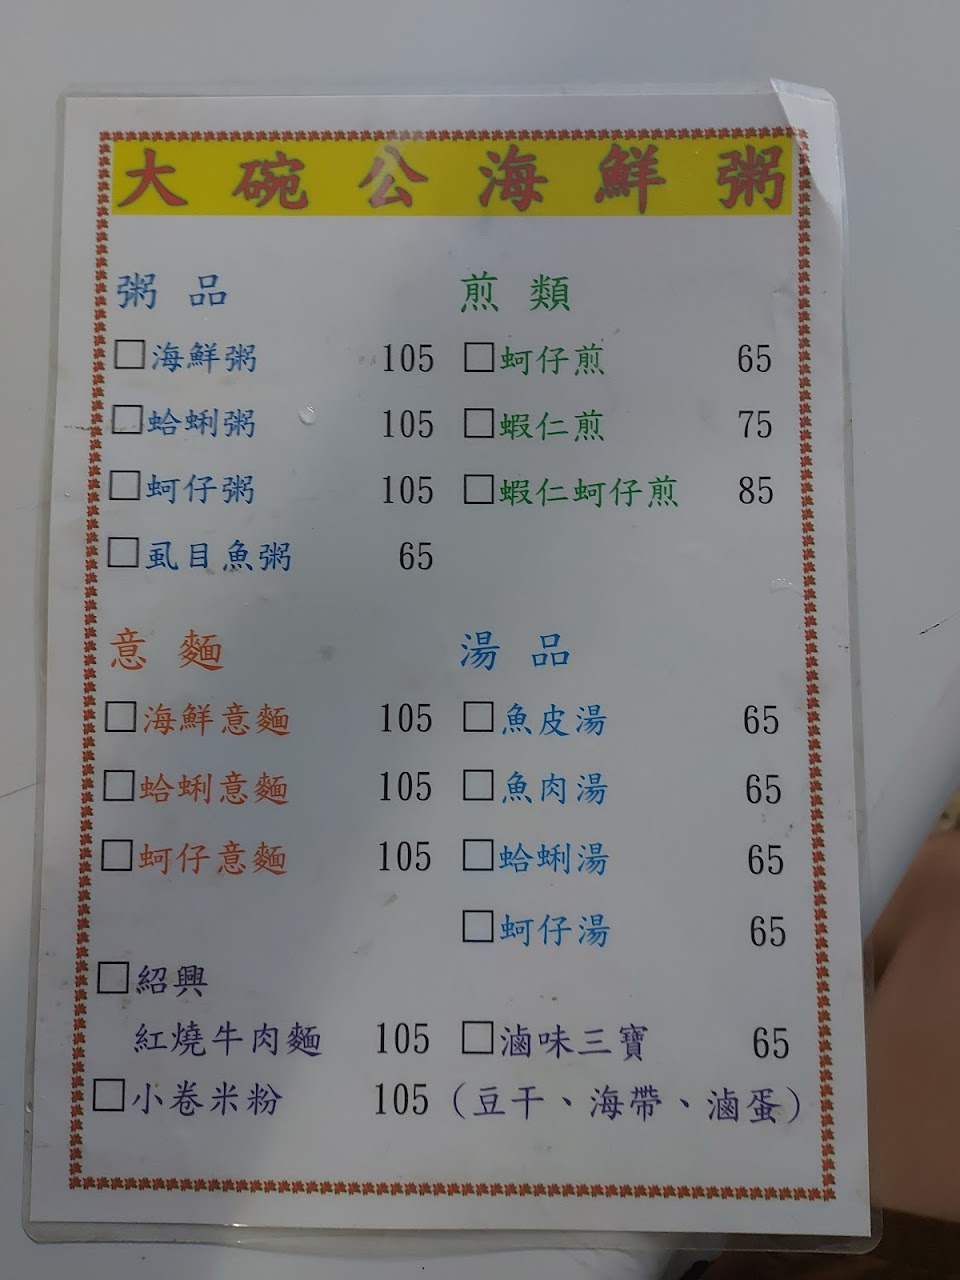 大碗公海鮮粥
粥品
□海鮮粥 105
□蛤蜊粥 105
□蚵仔粥 105
□虱目魚粥 65
煎類
□蚵仔煎 65
□蝦仁煎 75
□蝦仁蚵仔煎 85
意麵
□海鮮意麵 105
□蛤蜊意麵 105
□蚵仔意麵 105
湯品
□魚皮湯 65
□魚肉湯 65
□蛤蜊湯 65
□蚵仔湯 65
□紹興
紅燒牛肉麵 105
□小卷米粉 105
□滷味三寶 65
（豆干、海帶、滷蛋）